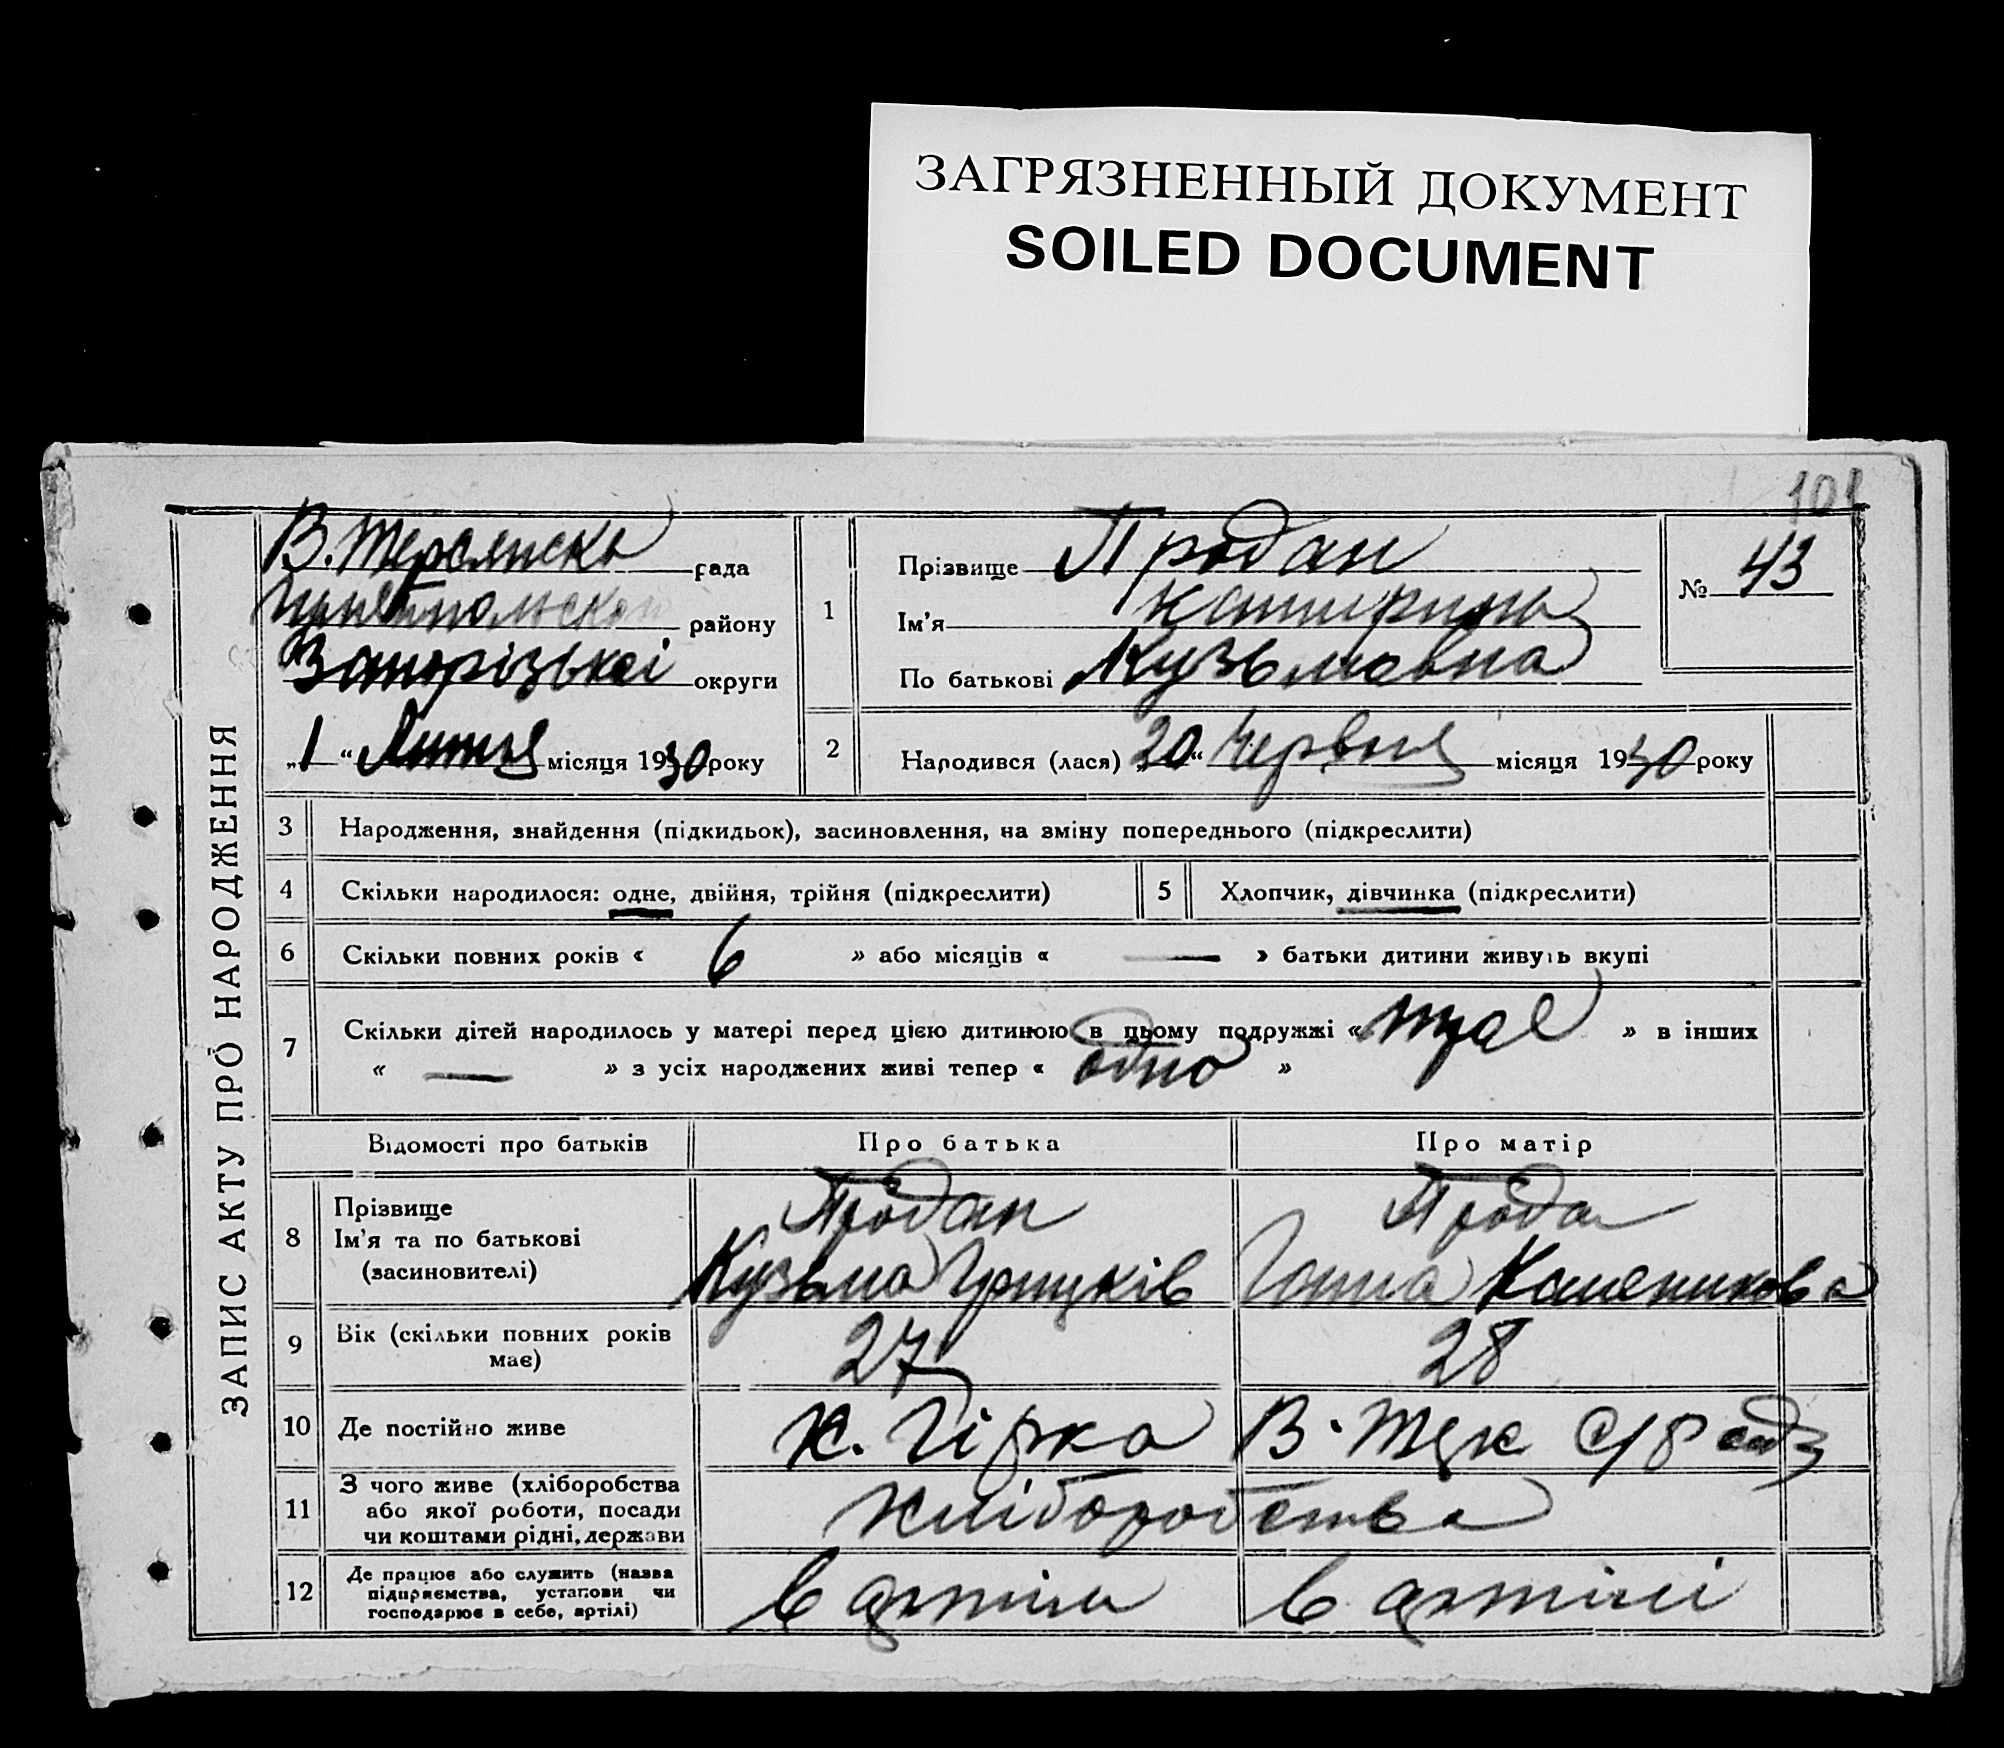 ЗАГРЯЗНЕННЫЙ ДОКУМЕНТ
SOILED DOCUMENT
101
ЗАПИС АКТУ ПРО НАРОДЖЕННЯ
В. Терсянська рада
району
Запорізької округи
„1“ Липня місяця 1930 року
1
Прізвище Продан
Ім'я Катирина
По батькові Кузьмовна
№ 43
2 Народився (лася) „20“ Червня місяця 1930 року
3 Народження, знайдення (підкидьок), засиновлення, на зміну попереднього (підкреслити)
4 Скільки народилося: одне, двійня, трійня (підкреслити) 5 Хлопчик, дівчинка (підкреслити)
6 Скільки повних років « 6 » або місяців « — » батьки дитини живуть вкупі
7 Скільки дітей народилось у матері перед цією дитиною в цьому подружжі « троє » в інших
« — » з усіх народжених живі тепер « одно »
Відомості про батьків Про батька Про матір
8 Прізвище Ім'я та по батькові (засиновителі)
Продан Прода
Кузьма Грицків Ганна
9 Вік (скільки повних років має) 27 28
10 Де постійно живе х. Гірка В.
11 З чого живе (хліборобства або якої роботи, посади чи коштами рідні, держави хліборобства
12 Де працює або служить (назва підприємства, установи чи господарює в себе, артілі) в артіли в артілі